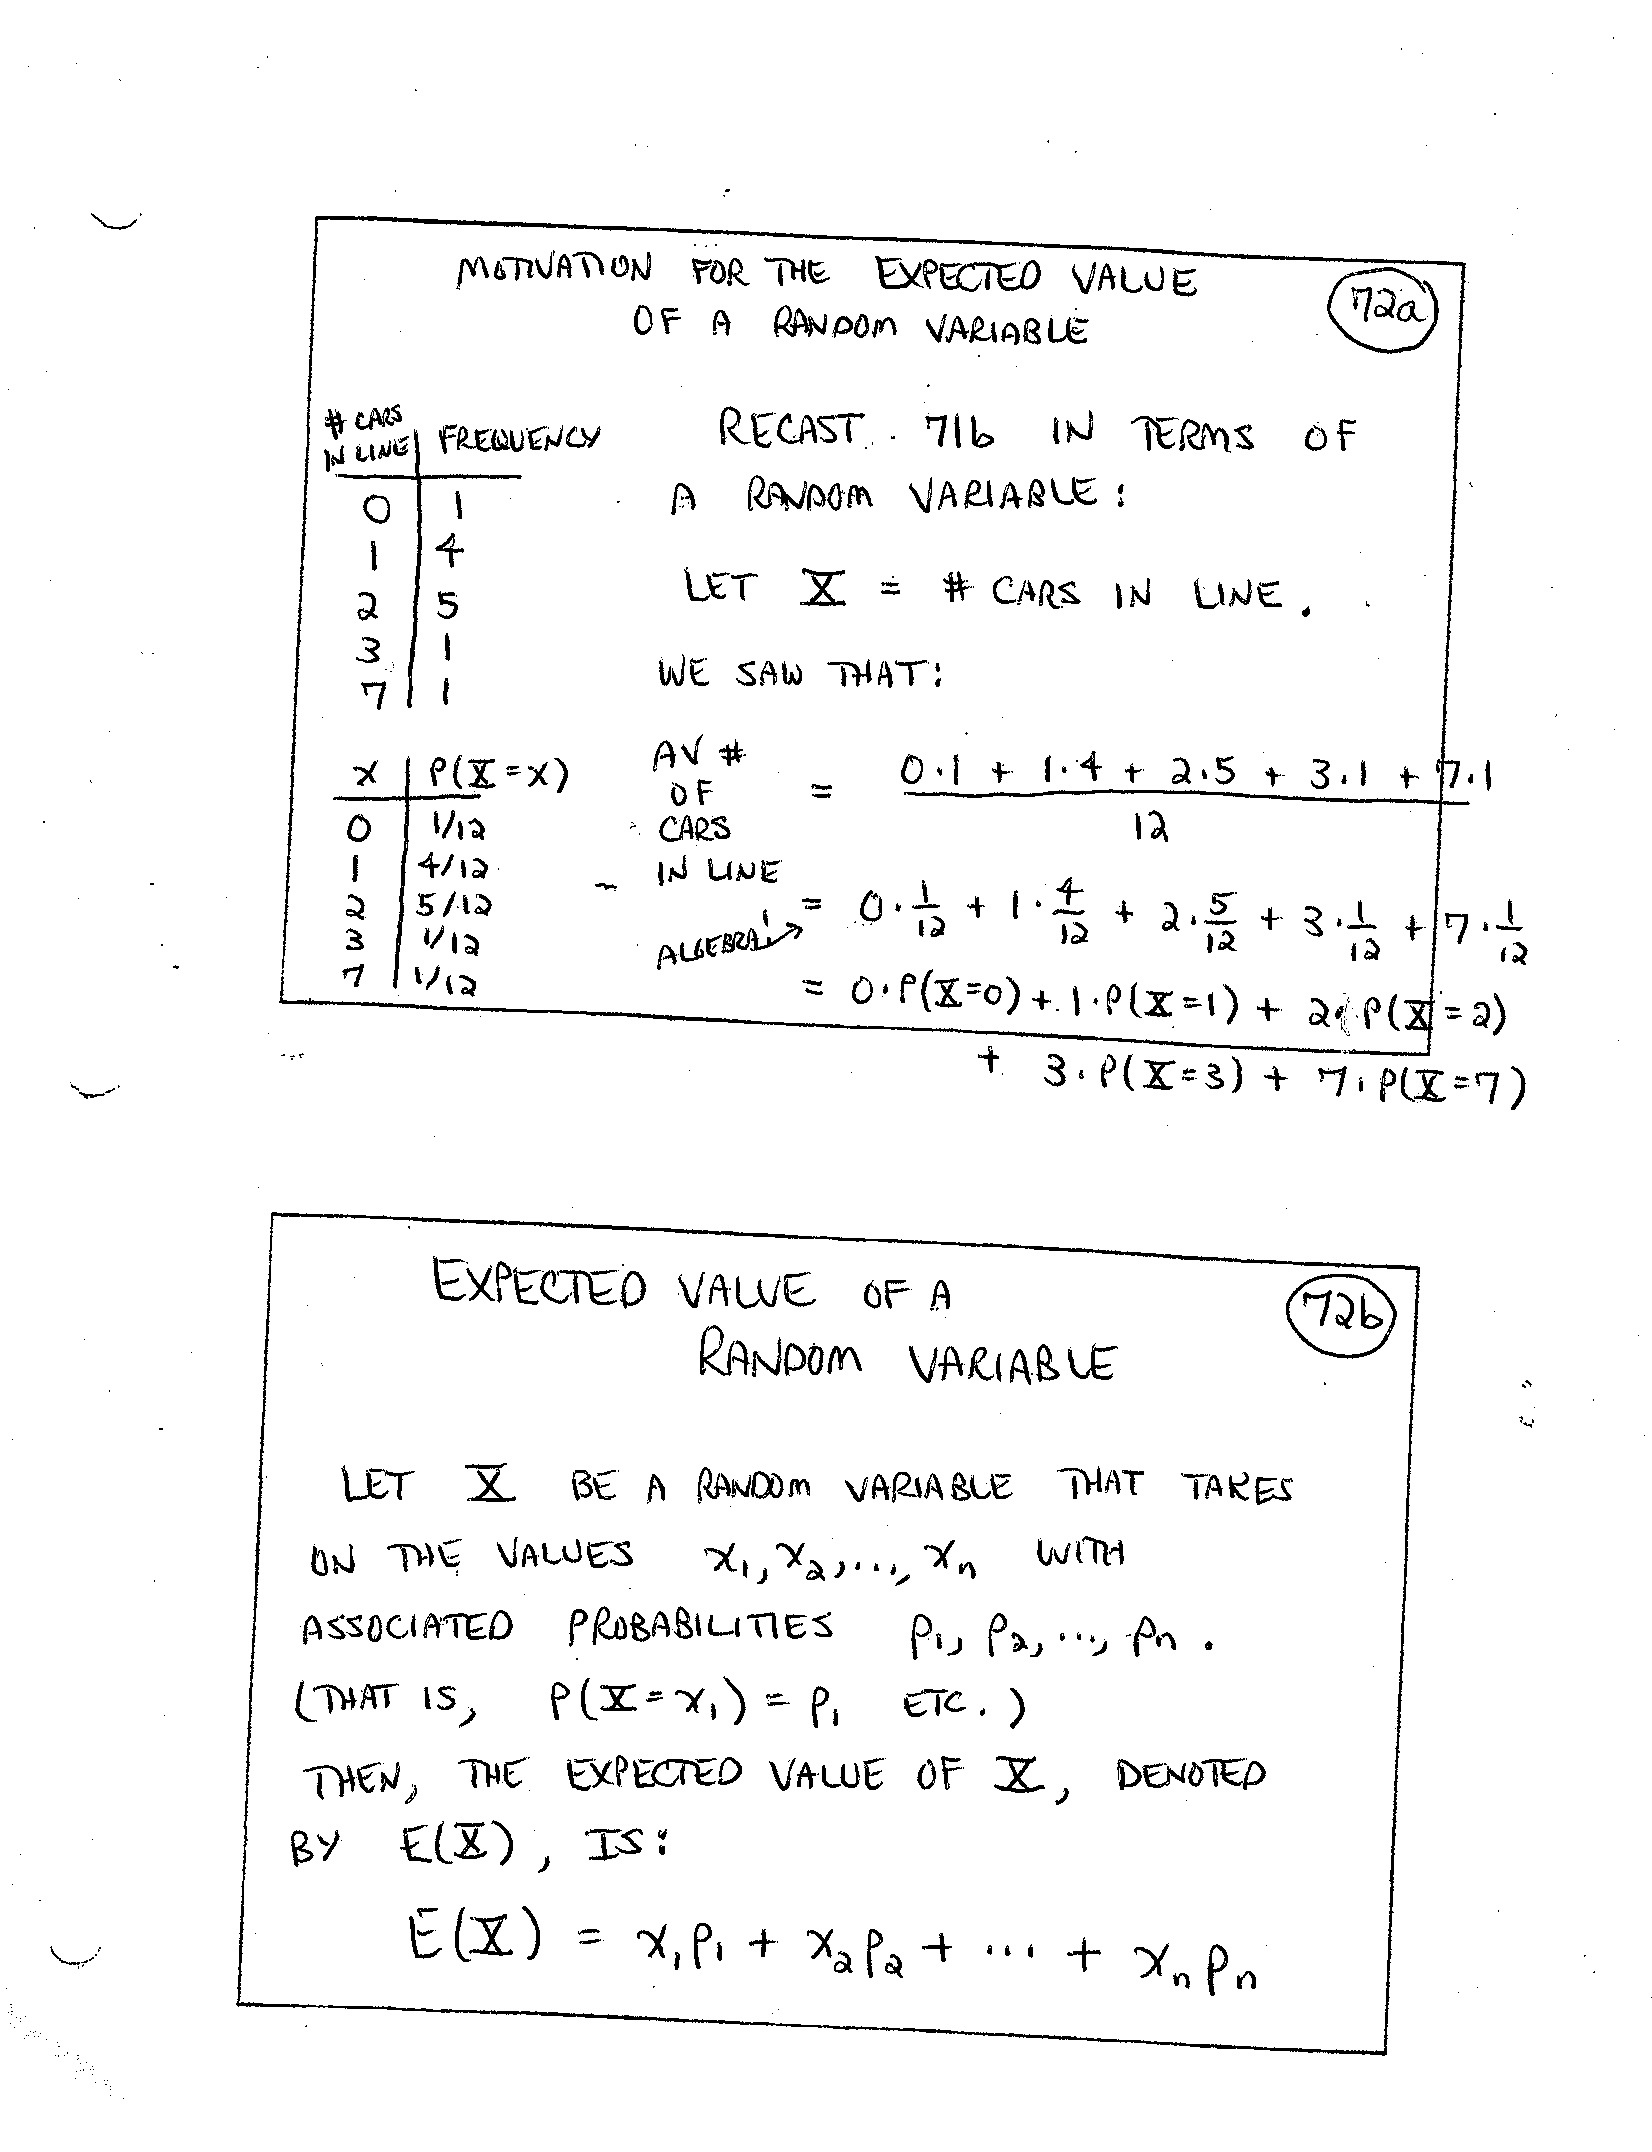 MOTIVATION FOR THE EXPECTED VALUE
OF A RANDOM VARIABLE
72a
# CARS IN LINE | FREQUENCY
0 | 1
1 | 4
2 | 5
3 | 1
7 | 1
x | P(X=x)
0 | 1/12
1 | 4/12
2 | 5/12
3 | 1/12
7 | 1/12
RECAST 71b IN TERMS OF
A RANDOM VARIABLE:
LET X = # CARS IN LINE.
WE SAW THAT:
AV #
OF
CARS
IN LINE
= (0·1 + 1·4 + 2·5 + 3·1 + 7·1)/12
ALGEBRA!
= 0·1/12 + 1·4/12 + 2·5/12 + 3·1/12 + 7·1/12
= 0·P(X=0) + 1·P(X=1) + 2·P(X=2)
+ 3·P(X=3) + 7·P(X=7)
EXPECTED VALUE OF A
RANDOM VARIABLE
72b
LET X BE A RANDOM VARIABLE THAT TAKES
ON THE VALUES x₁, x₂, ..., xₙ WITH
ASSOCIATED PROBABILITIES p₁, p₂, ..., pₙ.
(THAT IS, P(X=x₁) = p₁ ETC.)
THEN, THE EXPECTED VALUE OF X, DENOTED
BY E(X), IS:
E(X) = x₁p₁ + x₂p₂ + ... + xₙpₙ